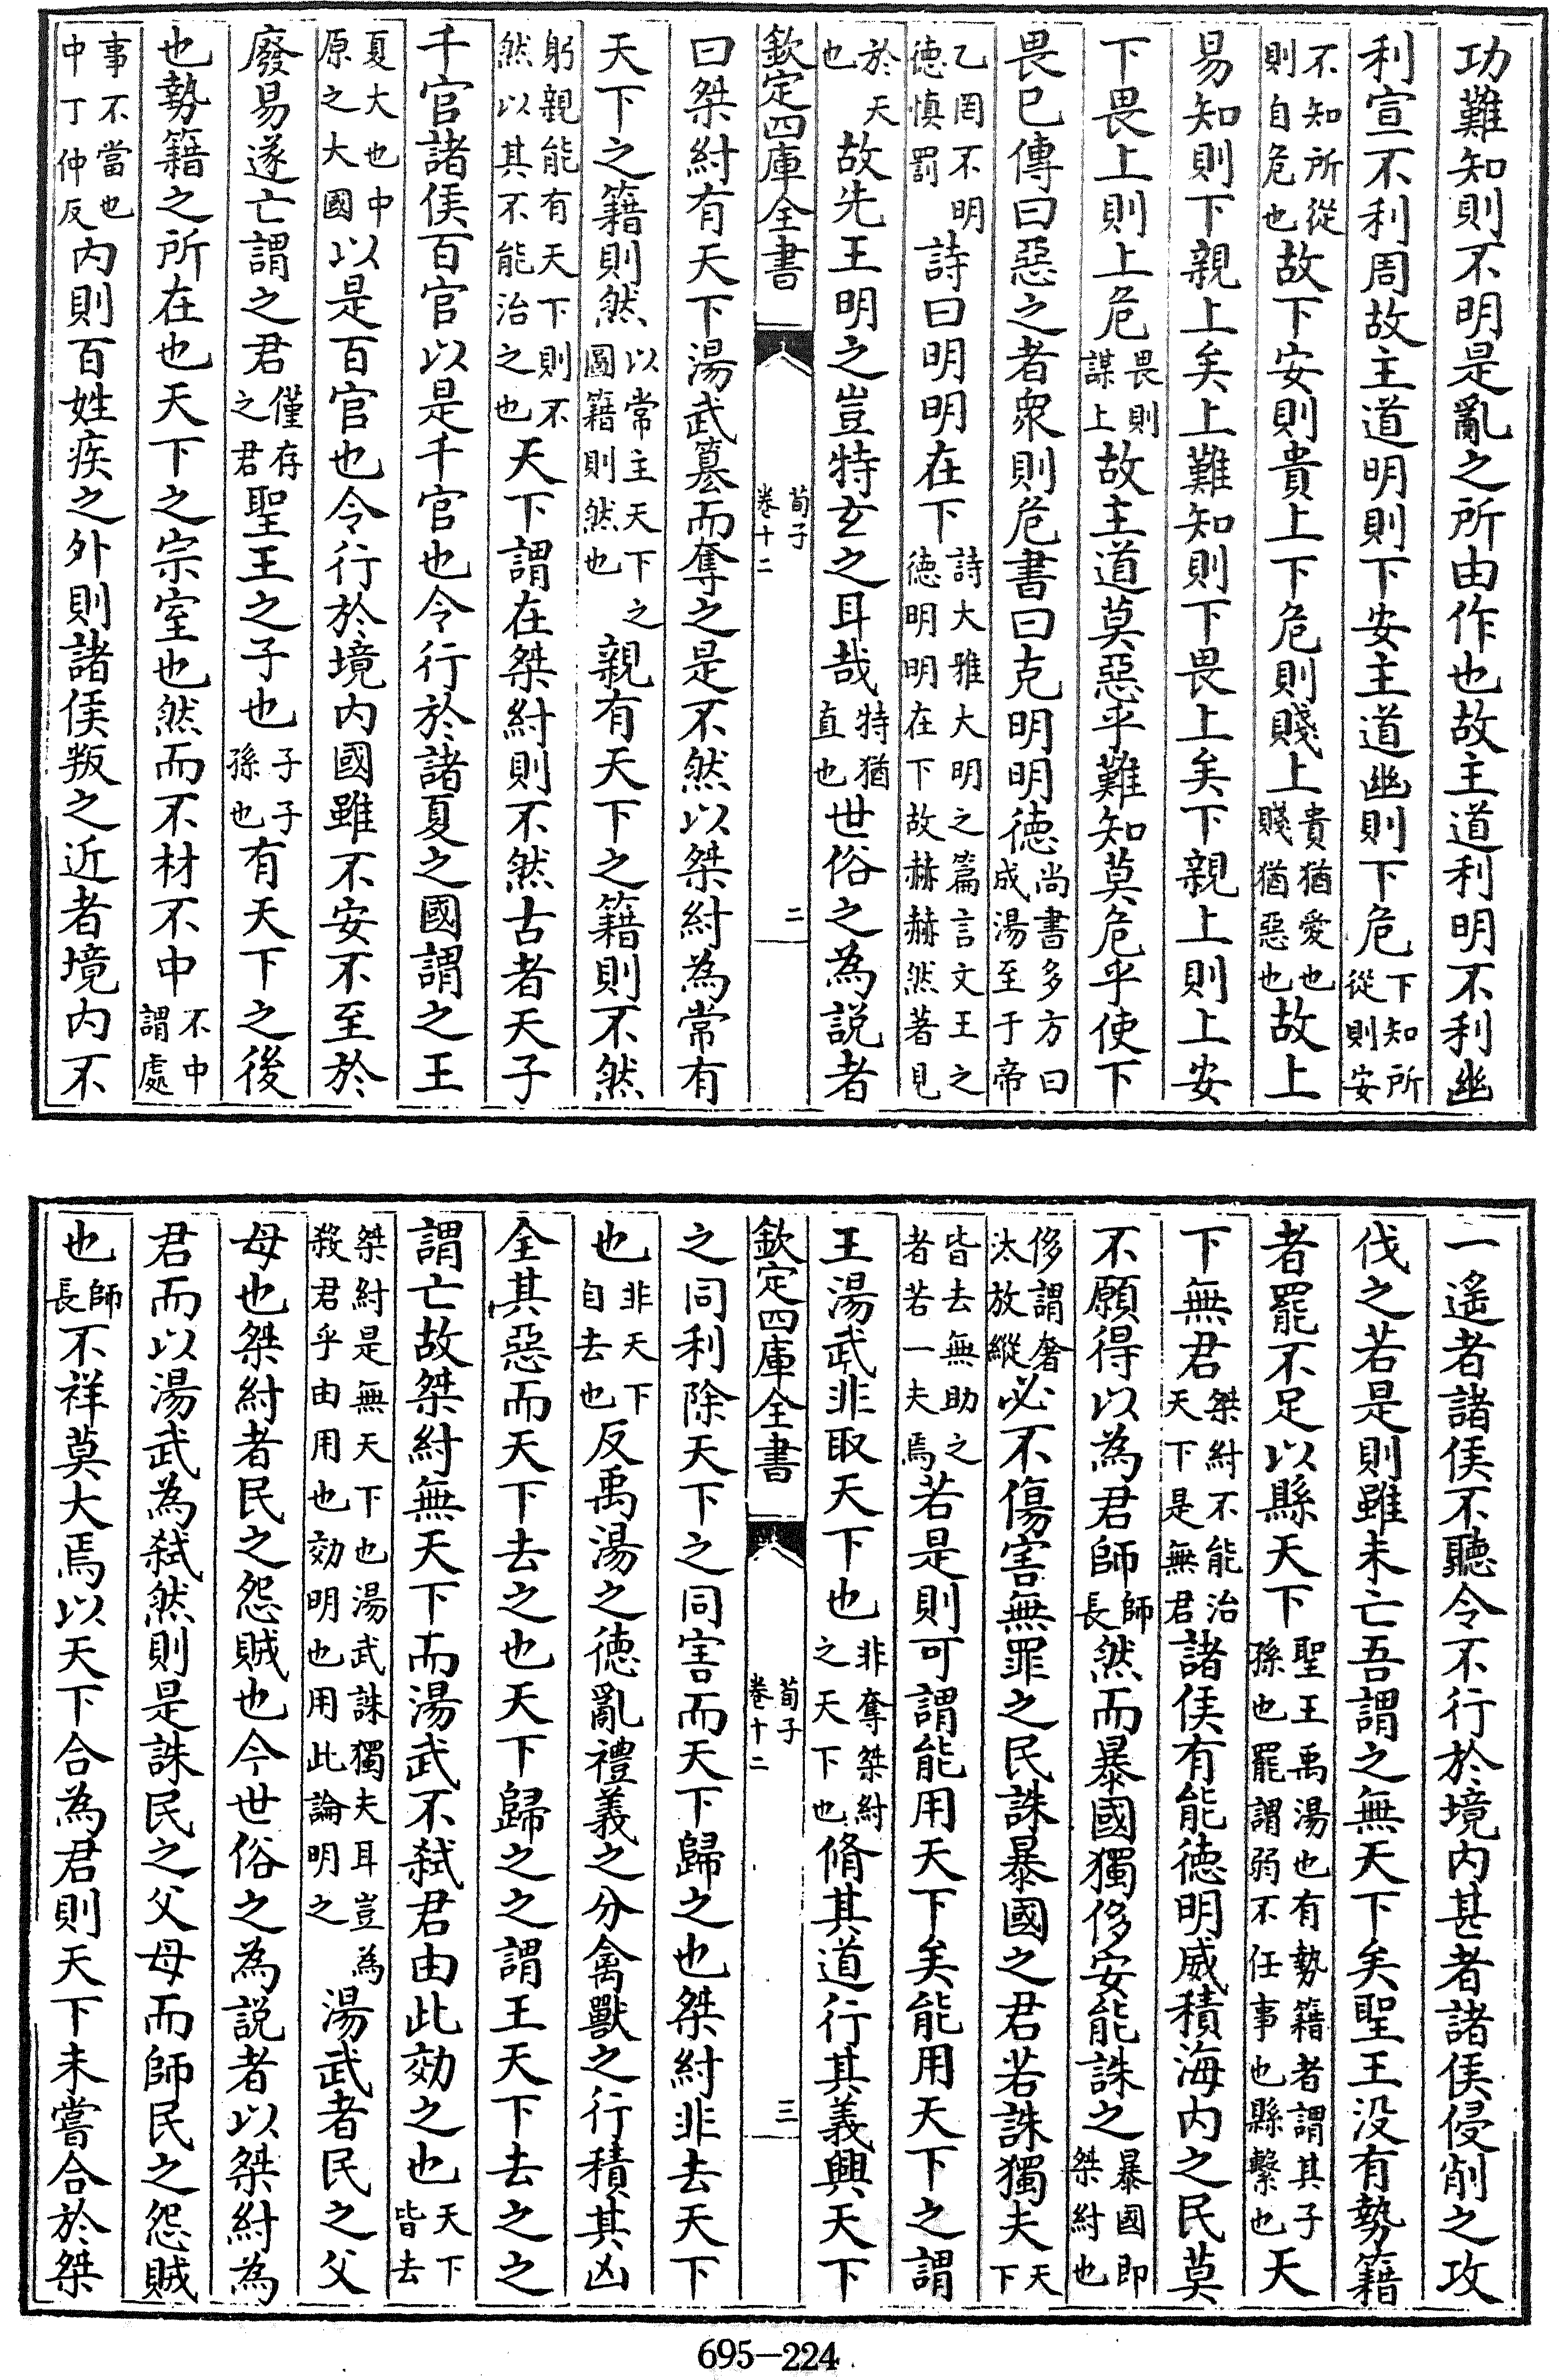 功難知則不明是亂之所由作也故主道利明不利幽
利宣不利周故主道明則下安主道幽則下危下知所從則安
不知所從則自危也故下安則貴上下危則賤上貴猶愛也賤猶惡也故上
易知則下親上矣上難知則下畏上矣下親上則上安
下畏上則上危畏則謀上故主道莫惡乎難知莫危乎使下
畏已傳曰惡之者衆則危書曰克明明徳尚書多方曰成湯至于帝
乙罔不明徳慎罰詩曰明明在下詩大雅大明之篇言文王之徳明明在下故赫赫然著見
於天也故先王明之豈特玄之耳哉特猶直也世俗之為説者
欽定四庫全書 荀子 卷十二 二
曰桀紂有天下湯武簒而奪之是不然以桀紂為常有
天下之籍則然以常主天下之圖籍則然也親有天下之籍則不然
躬親能有天下則不然以其不能治之也天下謂在桀紂則不然古者天子
千官諸侯百官以是千官也令行於諸夏之國謂之王
夏大也中原之大國以是百官也令行於境内國雖不安不至於
廢易遂亡謂之君僅存之君聖王之子也子子孫也有天下之後
也勢籍之所在也天下之宗室也然而不材不中不中謂處
事不當也中丁仲反内則百姓疾之外則諸侯叛之近者境内不
一遙者諸侯不聽令不行於境内甚者諸侯侵削之攻
伐之若是則雖未亡吾謂之無天下矣聖王没有勢籍
者罷不足以縣天下聖王禹湯也有勢籍者謂其子孫也罷謂弱不任事也縣繫也天
下無君桀紂不能治天下是無君諸侯有能徳明威積海内之民莫
不願得以為君師師長然而暴國獨侈安能誅之暴國即桀紂也
侈謂奢汰放縱必不傷害無罪之民誅暴國之君若誅獨夫天下
皆去無助之者若一夫焉若是則可謂能用天下矣能用天下之謂
王湯武非取天下也非奪桀紂之天下也脩其道行其義興天下
欽定四庫全書 荀子 卷十二 三
之同利除天下之同害而天下歸之也桀紂非去天下
也非天下自去也反禹湯之徳亂禮義之分禽獸之行積其凶
全其惡而天下去之也天下歸之之謂王天下去之之
謂亡故桀紂無天下而湯武不弑君由此効之也天下皆去
桀紂是無天下也湯武誅獨夫耳豈為殺君乎由用也効明也用此論明之湯武者民之父
母也桀紂者民之怨賊也今世俗之為説者以桀紂為
君而以湯武為弑然則是誅民之父母而師民之怨賊
也師長不祥莫大焉以天下合為君則天下未嘗合於桀
695—224